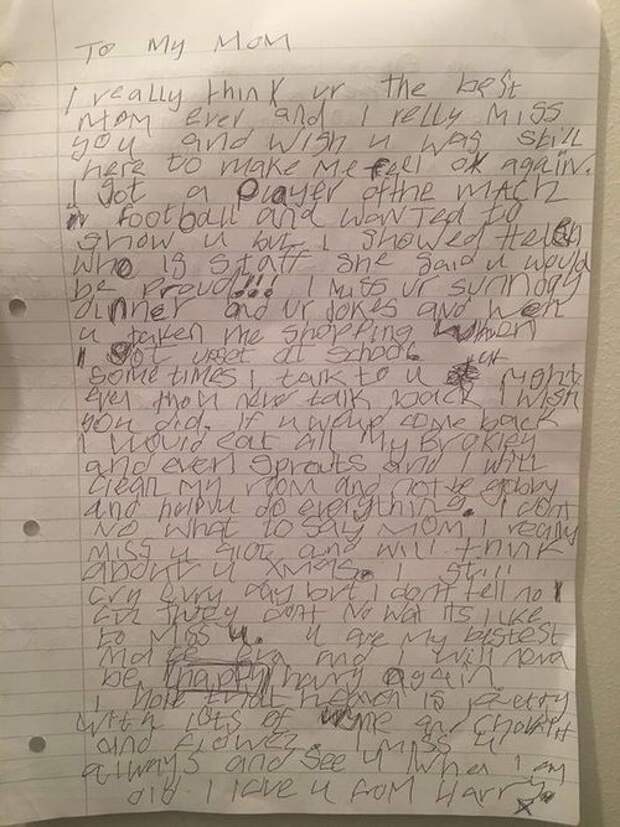 To My MOM
I really think ur the best
MOM ever and I relly MISS
you and wish u was still
here to make me feel ok again.
I got a Player ofthe MACH
football and wanted to
show u but I showed Helen
who is staff she said u would
be proud!!! I miss ur sunnday
dinner and ur jokes and wen
u taken me shopping when
I got upset at school.
some times I talk to u at night
even thou u never talk back I wish
you did. If u come back
I would eat all my Brokley
and even sprouts and I will
clean my room and not be gobby
and help u do everything. I dont
No what to say MOM I really
miss u alot and will think
about u Xmas. I still
cry evry day but I dont tell no 1
cuz they dont no wat its like
to miss u. u are my bestest
mate eva and I will neva
be happy harry again
I hope that heaven is pretty
with lots of wyne and
and flowez. I miss u
always and see u when I am
die I love u from Harry x